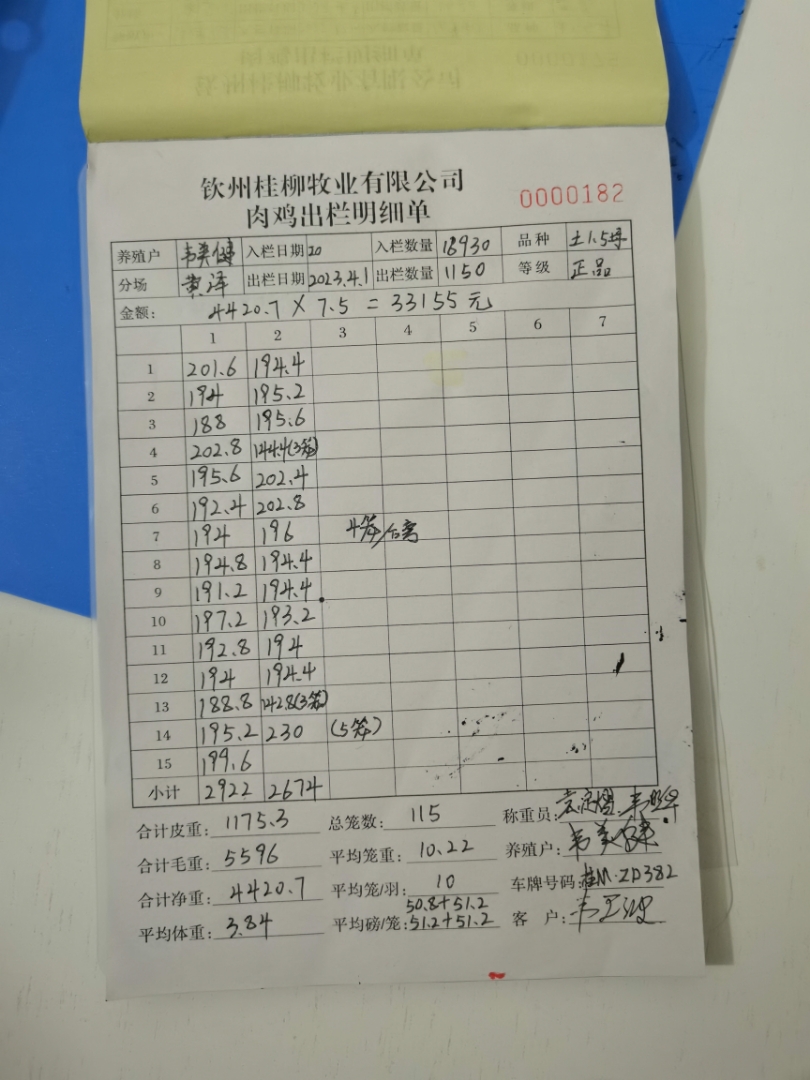 钦州桂柳牧业有限公司
肉鸡出栏明细单 0000182
养殖户 韦美健 入栏日期 20 入栏数量 18930 品种 土1.5
分场 黄泽 出栏日期 2023.4.1 出栏数量 1150 等级 正品
金额: 4420.7 × 7.5 = 33155元
1 2 3 4 5 6 7
1 201.6 194.4
2 194 195.2
3 188 195.6
4 202.8 144.4(3笼)
5 195.6 202.4
6 192.4 202.8
7 194 196 4笼/
8 194.8 194.4
9 191.2 194.4
10 197.2 193.2
11 192.8 194
12 194 194.4
13 188.8 142.8(3笼)
14 195.2 230 (5笼)
15 199.6
小计 2922 2674
合计皮重: 1175.3 总笼数: 115 称重员:
合计毛重: 5596 平均笼重: 10.22 养殖户: 韦美健
合计净重: 4420.7 平均笼/羽: 10 车牌号码: 桂M·ZD382
50.8+51.2
平均体重: 3.84 平均磅/笼: 51.2+51.2 客 户: